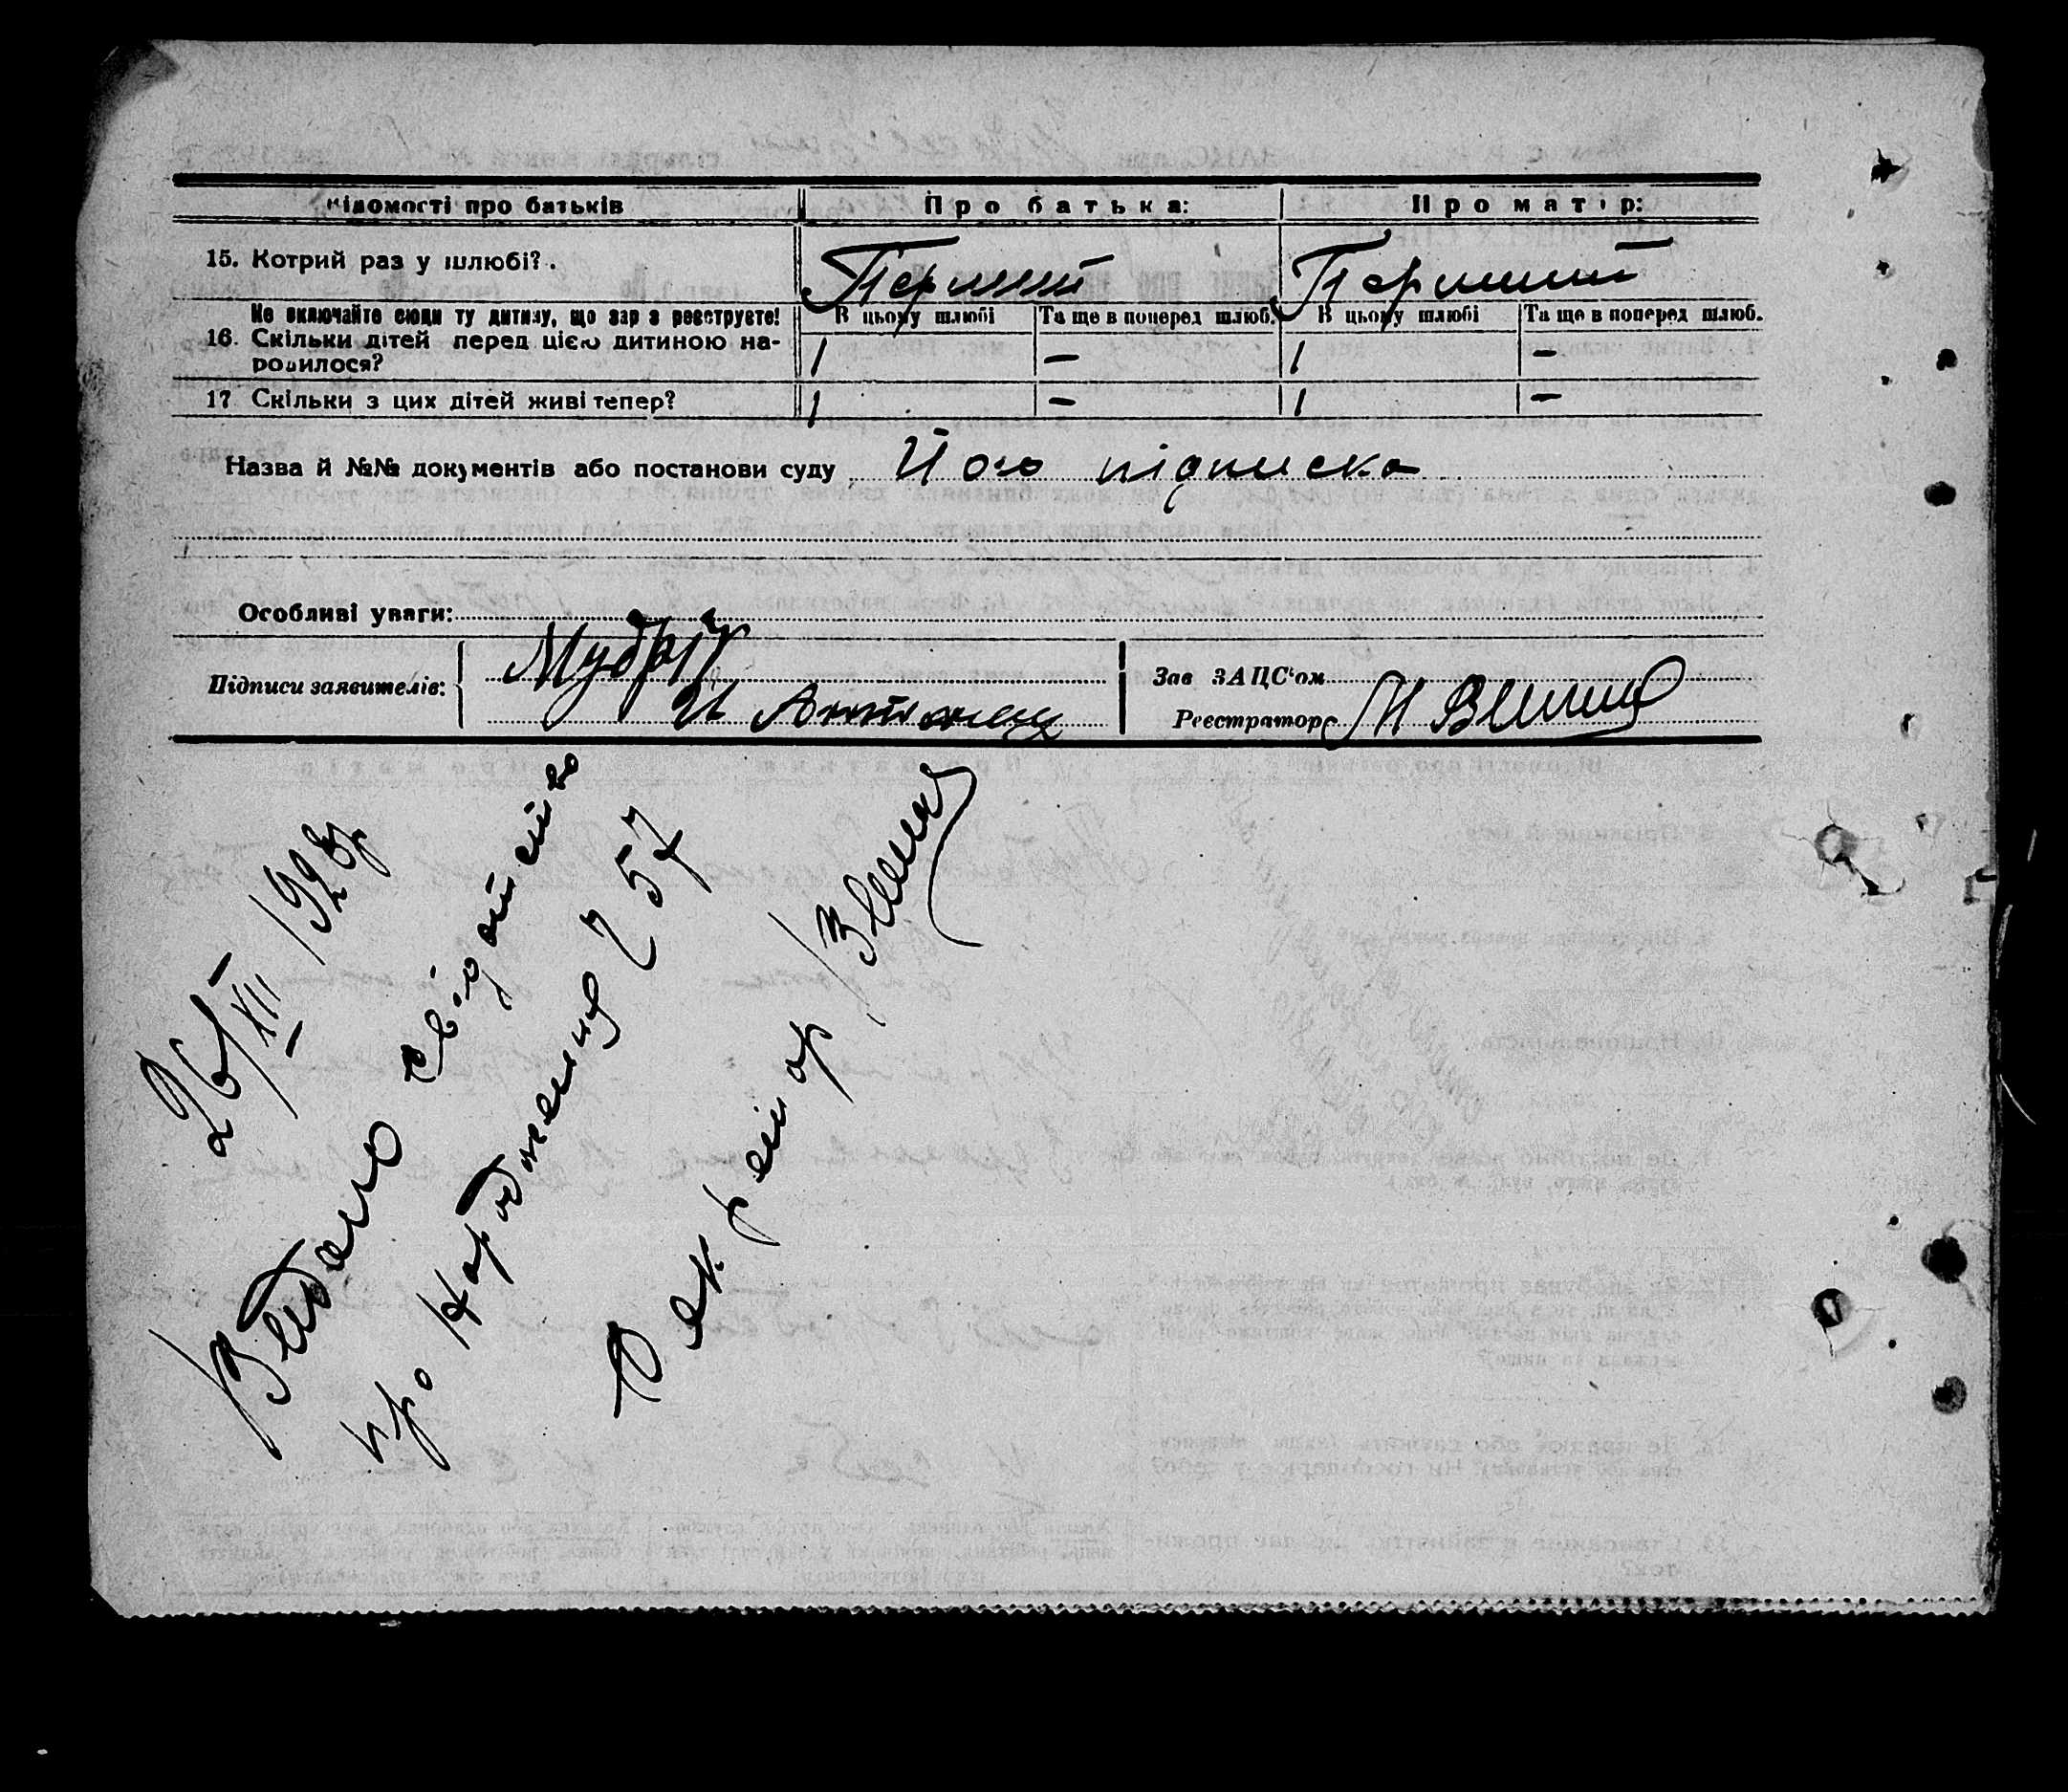 Відомості про батьків Про батька: Про матір:
15. Котрий раз у шлюбі? . Перший Перший
Не включайте сюди ту дитину, що зар з реєструєте! В цьому шлюбі Та ще в поперед шлюб. В цьому шлюбі Та ще в поперед шлюб.
16. Скільки дітей перед цією дитиною на-
родилося? 1 — 1 —
17 Скільки з цих дітей живі тепер? 1 — 1 —
Назва й №№ документів або постанови суду Його підписка
Особливі уваги:
Підписи заявителів: Мудрі Зав ЗАЦС'ом
И Реєстратор
26/XII 1928р
Видано свідотство
про Народженя 57
Секретар